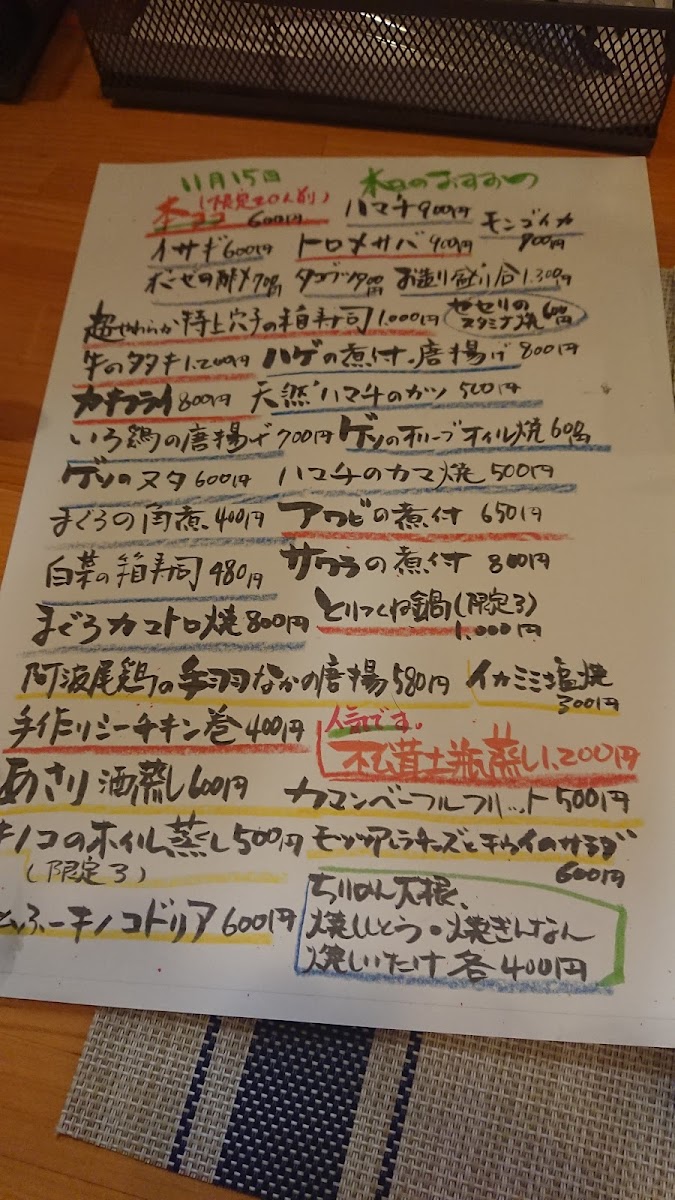 11月15日 本日のおすすめ
(限定20人前)
600円 ハマチ900円 モンゴイカ
900円
イサギ600円 トロメサバ900円
お造り盛り合1.300円
超やわらか特上穴子の箱寿司1.000円 セセリの
スタミナ焼600円
牛のタタキ1.200円 ハゲの煮付.唐揚げ800円
カキフライ800円 天然ハマチのカツ500円
いろ鶏の唐揚げ700円 ゲソのオリーブオイル焼600円
ゲソのヌタ600円 ハマチのカマ焼500円
まぐろの角煮.400円 アワビの煮付 650円
白菜の箱寿司480円 サワラの煮付 800円
まぐろカマトロ焼800円 とりつくね鍋(限定3)
1.000円
阿波尾鶏の手羽なかの唐揚580円 イカミミ塩焼
300円
手作りシーチキン巻400円 人気です。
松茸土瓶蒸し1.200円
あさり酒蒸し600円 カマンベールフリット500円
キノコのホイル蒸し500円 モッツァレラチーズとキウイのサラダ
(限定3) 600円
とうふーキノコドリア600円
焼ししとう・焼ぎんなん
焼しいたけ 各400円